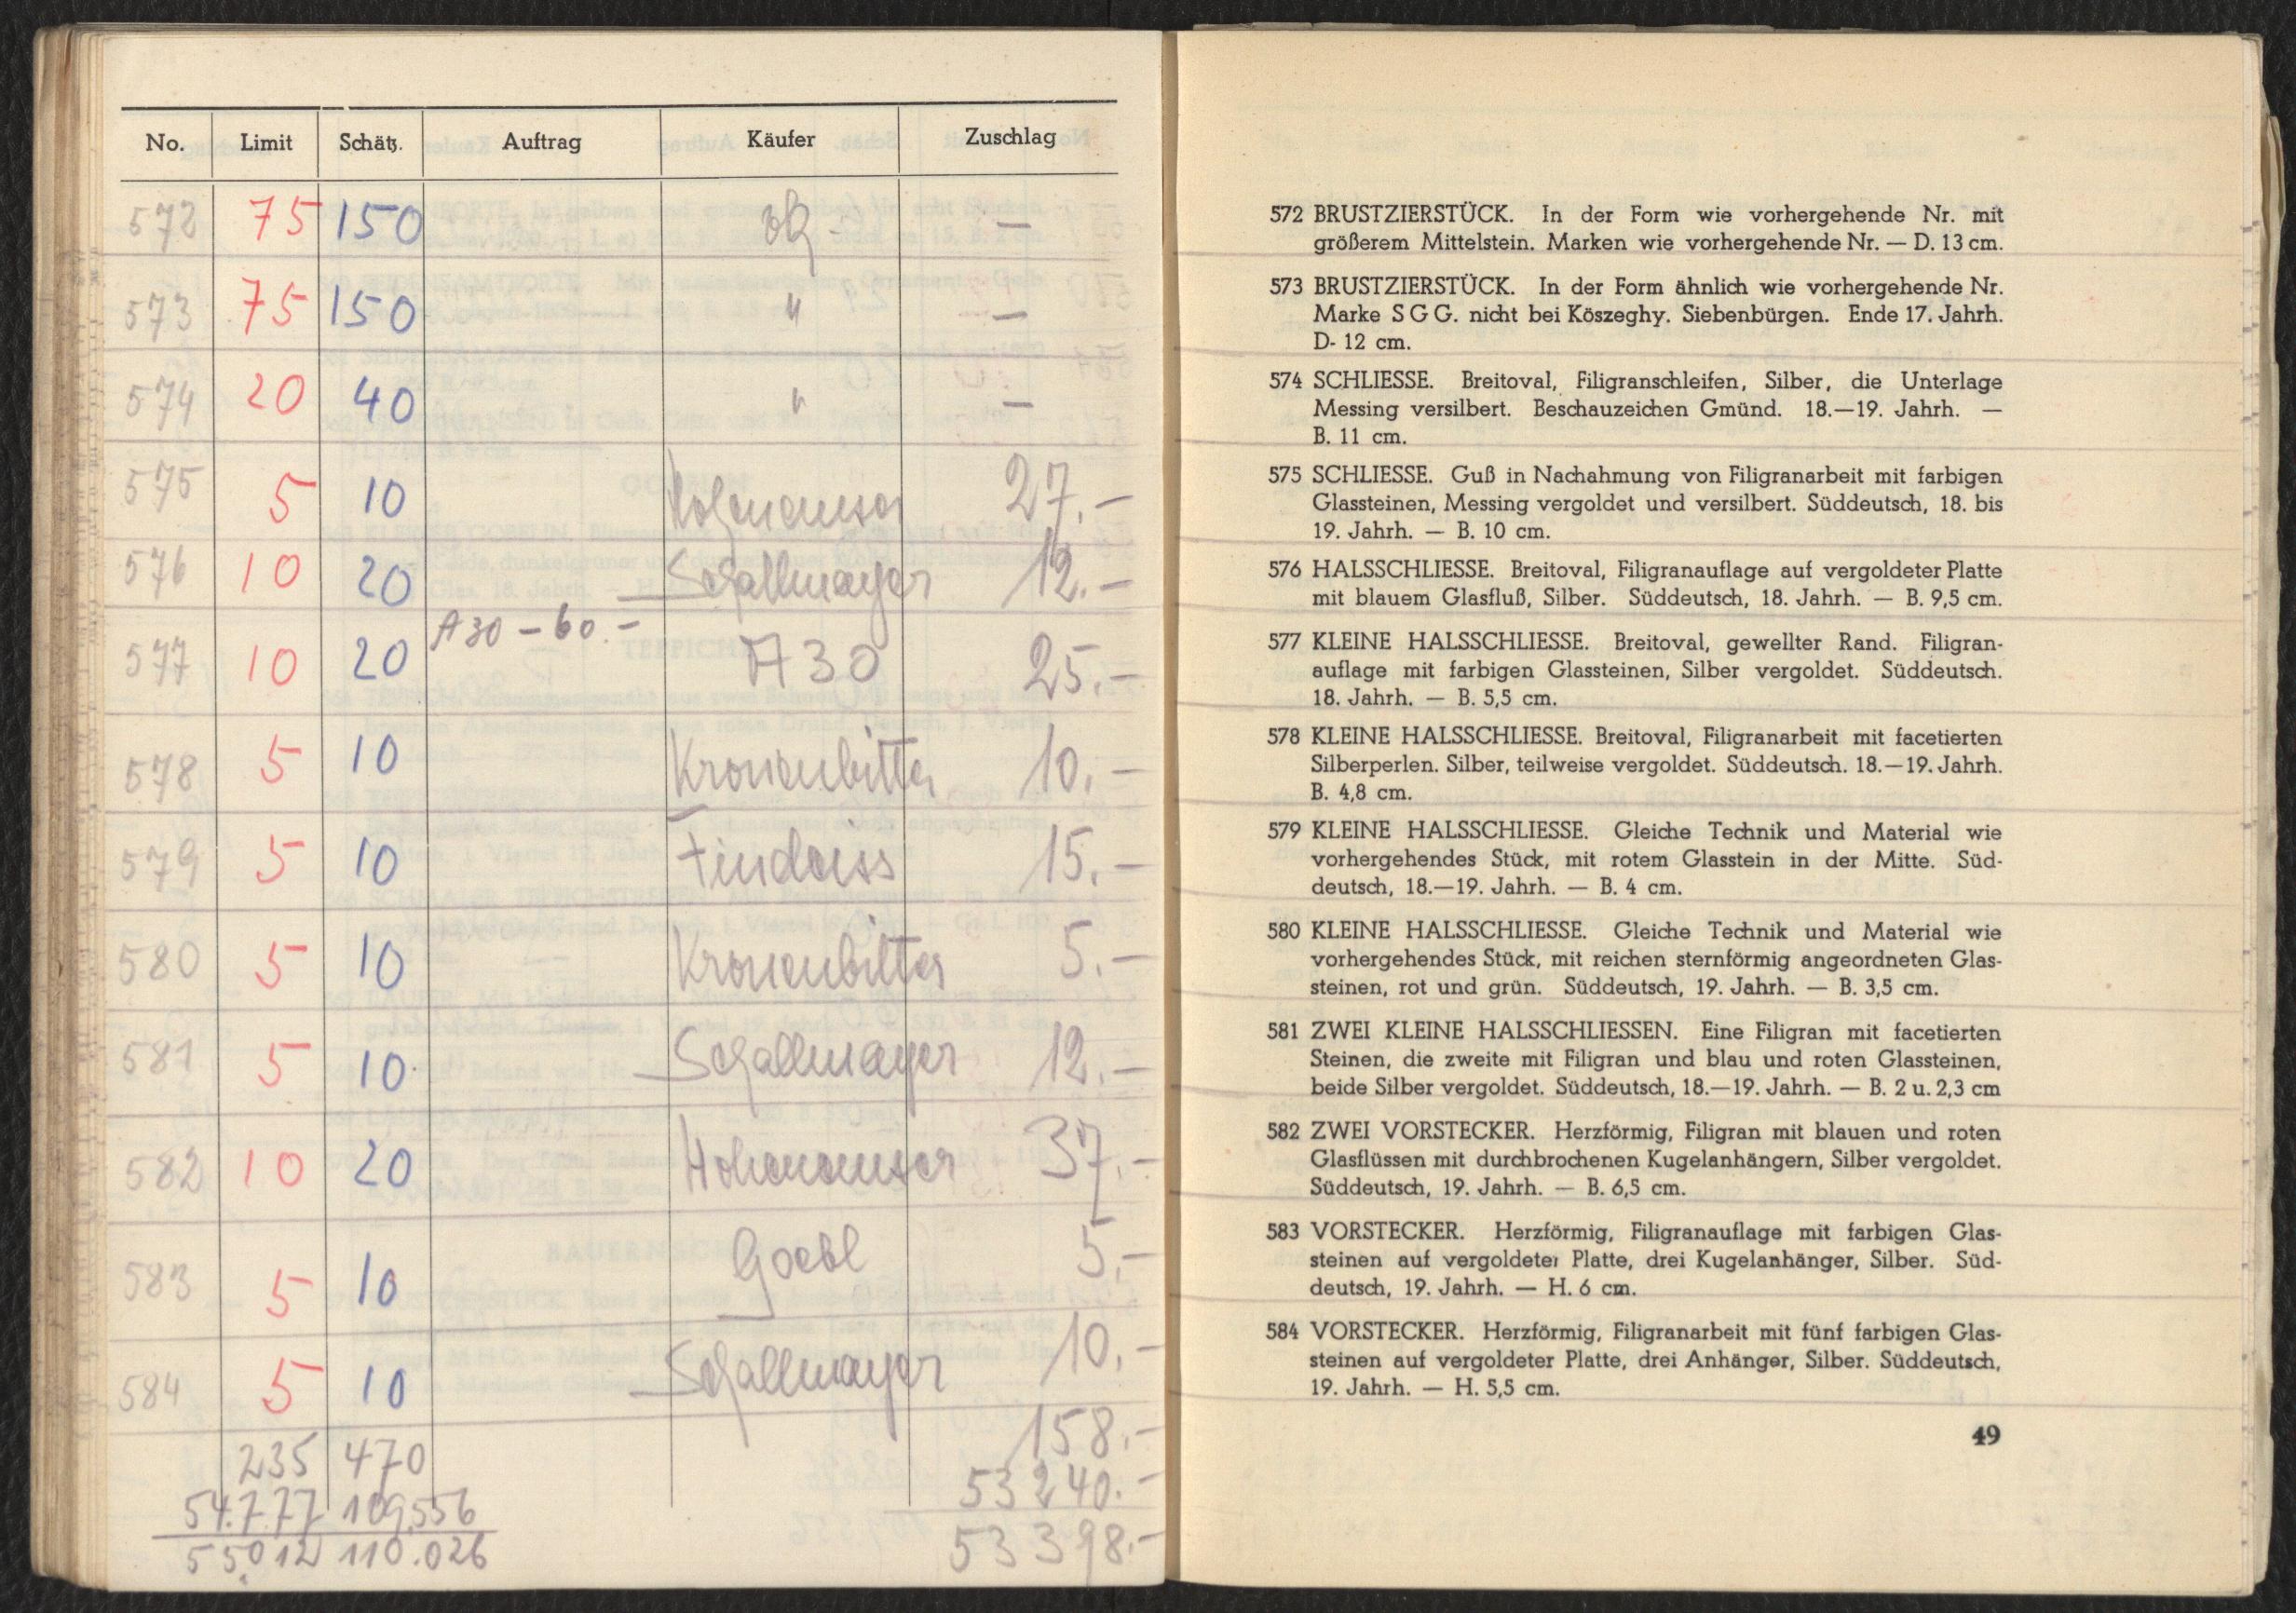 No. Limit Schätz. Auftrag Käufer Zuschlag
572 75 150 —
573 75 150 " —
574 20 40 " —
575 5 10 27.–
576 10 20 Schallmayer 12.–
577 10 20 A30 – 60.– A 30 25.–
578 5 10 Kronenbitter 10.–
579 5 10 Findeiss 15.–
580 5 10 Kronenbitter 5.–
581 5 10 Schallmayer 12.–
582 10 20 37.–
583 5 10 Goebl 5.–
584 5 10 Schallmayer 10.–
235 470 158.–
54.777 109.556 53240.–
55012 110.026 53398.–
572 BRUSTZIERSTÜCK. In der Form wie vorhergehende Nr. mit
größerem Mittelstein. Marken wie vorhergehende Nr. — D. 13 cm.
573 BRUSTZIERSTÜCK. In der Form ähnlich wie vorhergehende Nr.
Marke S G G. nicht bei Köszeghy. Siebenbürgen. Ende 17. Jahrh.
D- 12 cm.
574 SCHLIESSE. Breitoval, Filigranschleifen, Silber, die Unterlage
Messing versilbert. Beschauzeichen Gmünd. 18.—19. Jahrh. —
B. 11 cm.
575 SCHLIESSE. Guß in Nachahmung von Filigranarbeit mit farbigen
Glassteinen, Messing vergoldet und versilbert. Süddeutsch, 18. bis
19. Jahrh. — B. 10 cm.
576 HALSSCHLIESSE. Breitoval, Filigranauflage auf vergoldeter Platte
mit blauem Glasfluß, Silber. Süddeutsch, 18. Jahrh. — B. 9,5 cm.
577 KLEINE HALSSCHLIESSE. Breitoval, gewellter Rand. Filigran-
auflage mit farbigen Glassteinen, Silber vergoldet. Süddeutsch.
18. Jahrh. — B. 5,5 cm.
578 KLEINE HALSSCHLIESSE. Breitoval, Filigranarbeit mit facetierten
Silberperlen. Silber, teilweise vergoldet. Süddeutsch. 18.—19. Jahrh.
B. 4,8 cm.
579 KLEINE HALSSCHLIESSE. Gleiche Technik und Material wie
vorhergehendes Stück, mit rotem Glasstein in der Mitte. Süd-
deutsch, 18.—19. Jahrh. — B. 4 cm.
580 KLEINE HALSSCHLIESSE. Gleiche Technik und Material wie
vorhergehendes Stück, mit reichen sternförmig angeordneten Glas-
steinen, rot und grün. Süddeutsch, 19. Jahrh. — B. 3,5 cm.
581 ZWEI KLEINE HALSSCHLIESSEN. Eine Filigran mit facetierten
Steinen, die zweite mit Filigran und blau und roten Glassteinen,
beide Silber vergoldet. Süddeutsch, 18.—19. Jahrh. — B. 2 u. 2,3 cm
582 ZWEI VORSTECKER. Herzförmig, Filigran mit blauen und roten
Glasflüssen mit durchbrochenen Kugelanhängern, Silber vergoldet.
Süddeutsch, 19. Jahrh. — B. 6,5 cm.
583 VORSTECKER. Herzförmig, Filigranauflage mit farbigen Glas-
steinen auf vergoldeter Platte, drei Kugelanhänger, Silber. Süd-
deutsch, 19. Jahrh. — H. 6 cm.
584 VORSTECKER. Herzförmig, Filigranarbeit mit fünf farbigen Glas-
steinen auf vergoldeter Platte, drei Anhänger, Silber. Süddeutsch,
19. Jahrh. — H. 5,5 cm.
49